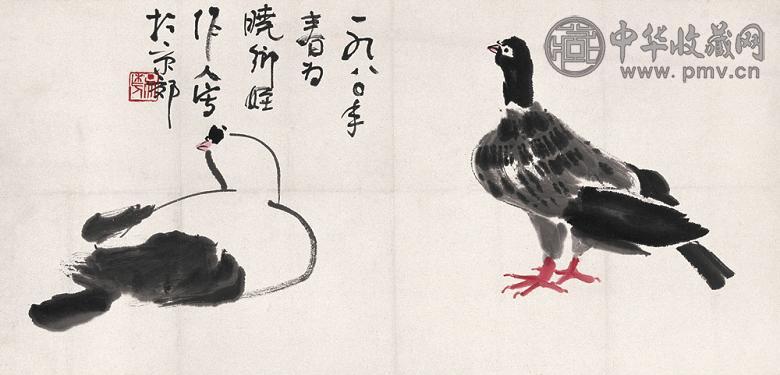 一九八〇年
春为
晓姪
作人写
於京郊
中华收藏网
www.pmv.cn